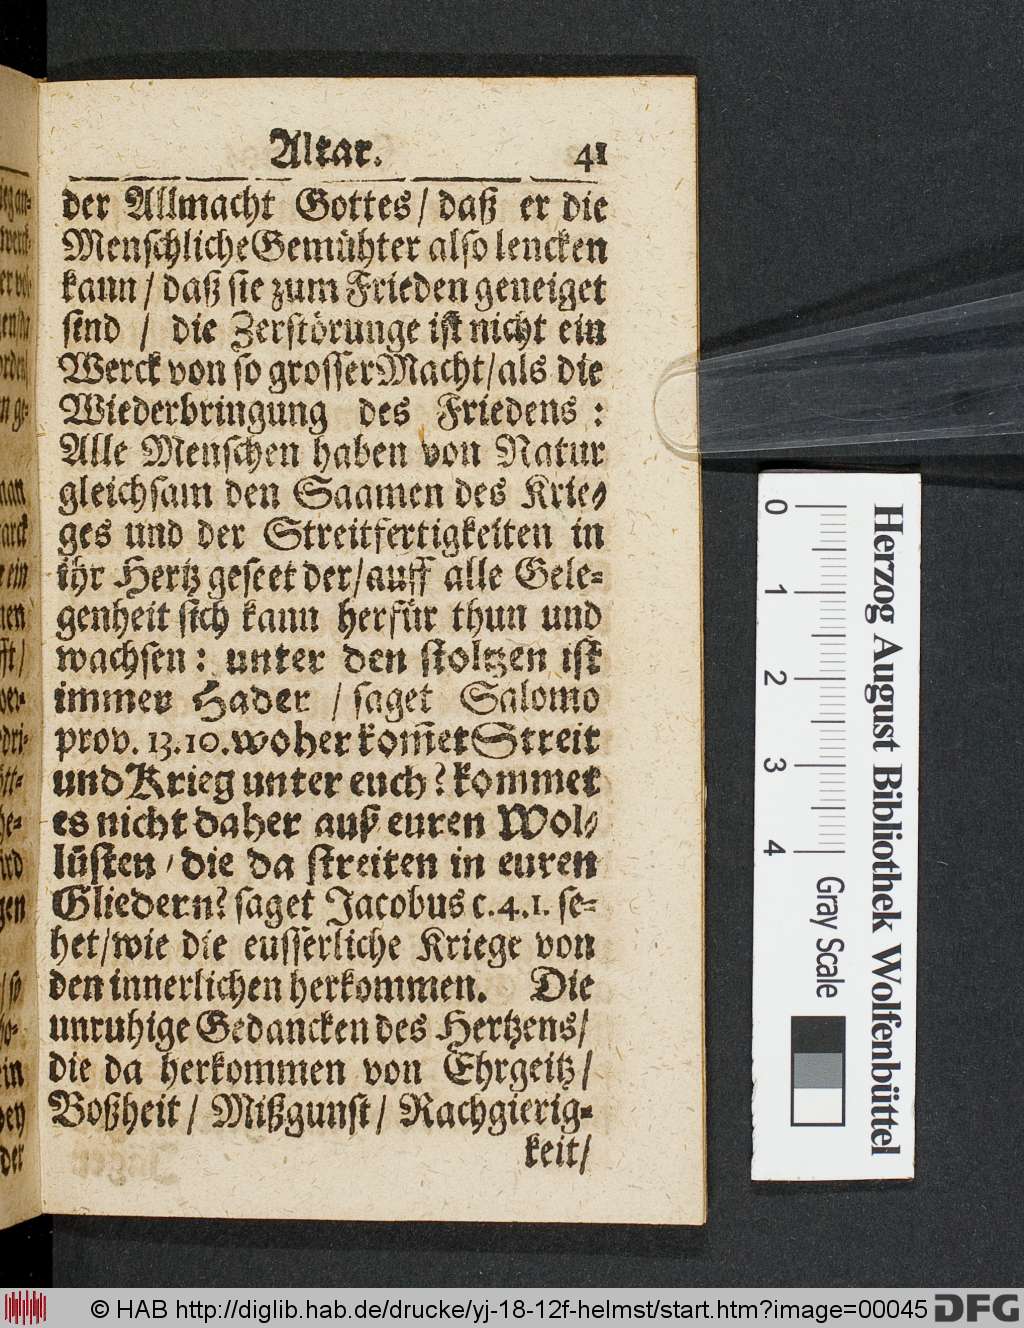 Altar. 41
der Allmacht Gottes / daß er die
Menschliche Gemühter also lencken
kann / daß sie zum Frieden geneiget
sind / die Zerstörunge ist nicht ein
Werck von so grosser Macht / als die
Wiederbringung des Friedens :
Alle Menschen haben von Natur
gleichsam den Saamen des Krie-
ges und der Streitfertigkeiten in
ihr Hertz geseet der / auff alle Gele-
genheit sich kann herfür thun und
wachsen : unter den stoltzen ist
immer Hader / saget Salomo
prov. 13.10. woher kom̃et Streit
und Krieg unter euch ? kommet
es nicht daher auß euren Wol-
lüsten / die da streiten in euren
Gliedern? saget Jacobus c.4.1. se-
het / wie die eusserliche Kriege von
den innerlichen herkommen. Die
unruhige Gedancken des Hertzens /
die da herkommen von Ehrgeitz /
Boßheit / Mißgunst / Rachgierig-
keit /
0 1 2 3 4 Gray Scale
Herzog August Bibliothek Wolfenbüttel
© HAB http://diglib.hab.de/drucke/yj-18-12f-helmst/start.htm?image=00045 DFG